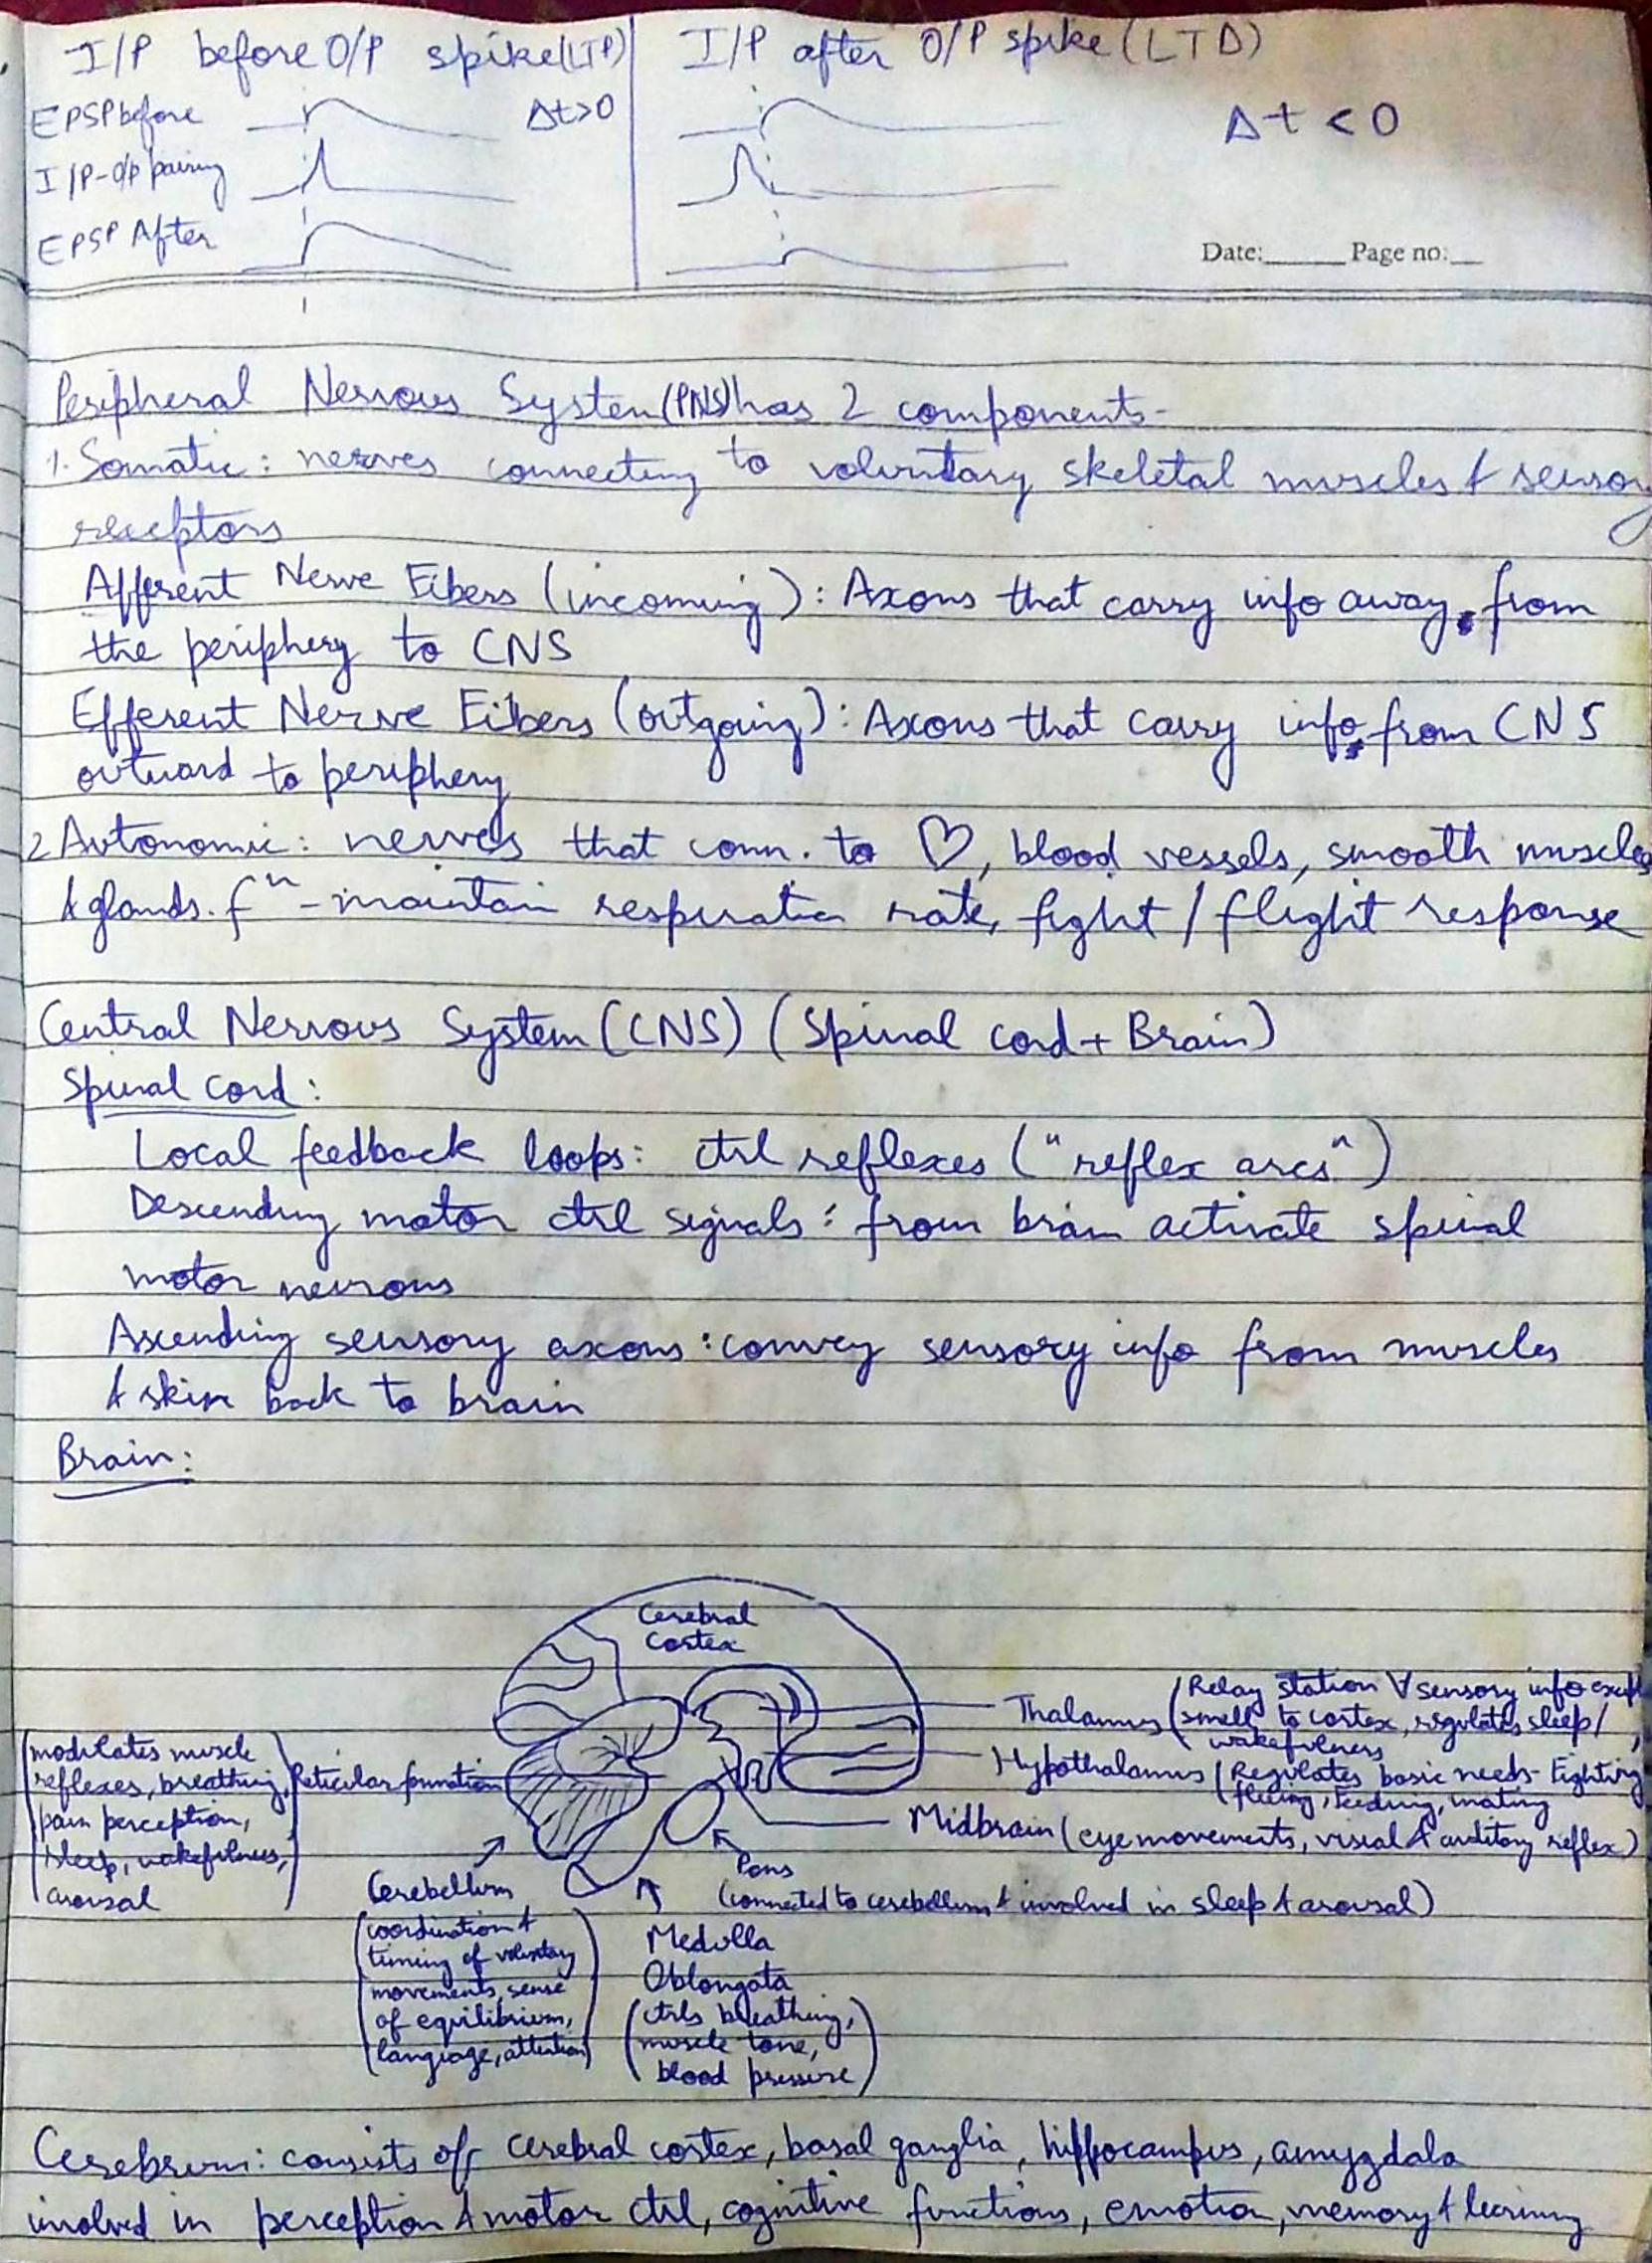 I/P before O/P spike(LTP)
EPSP before
Δt>0
I/P-O/P pairing
EPSP After
I/P after O/P spike (LTD)
Δt < 0
Date:______ Page no:__
Peripheral Nervous System(PNS) has 2 components-
1. Somatic: nerves connecting to voluntary skeletal muscles & sensory
receptors
Afferent Nerve Fibers (incoming): Axons that carry info away from
the periphery to CNS
Efferent Nerve Fibers (outgoing): Axons that carry info from CNS
outward to periphery
2 Autonomic: nerves that conn. to ♡, blood vessels, smooth muscles
& glands. fⁿ - maintain respiration rate, fight / flight response
Central Nervous System (CNS) (Spinal cord + Brain)
Spinal cord:
Local feedback loops: ctrl reflexes ("reflex arcs")
Descending motor ctrl signals: from brain activate spinal
motor neurons
Ascending sensory axons: convey sensory info from muscles
& skin back to brain
Brain:
Cerebral
Cortex
Thalamus (Relay station ∀ sensory info except
smell, to cortex, regulates sleep/
wakefulness
Hypothalamus (Regulates basic needs- Fighting
fleeing, feeding, mating
Midbrain (eye movements, visual & auditory reflex)
Pons
(connected to cerebellum & involved in sleep & arousal)
Reticular formation
(modulates muscle
reflexes, breathing,
pain perception,
sleep, wakefulness,
arousal)
Cerebellum
(coordination &
timing of voluntary
movements, sense
of equilibrium,
language, attention)
Medulla
Oblongata
(ctrls breathing,
muscle tone,
blood pressure)
Cerebrum: consists of cerebral cortex, basal ganglia, hippocampus, amygdala
involved in perception & motor ctrl, cognitive functions, emotion, memory & learning